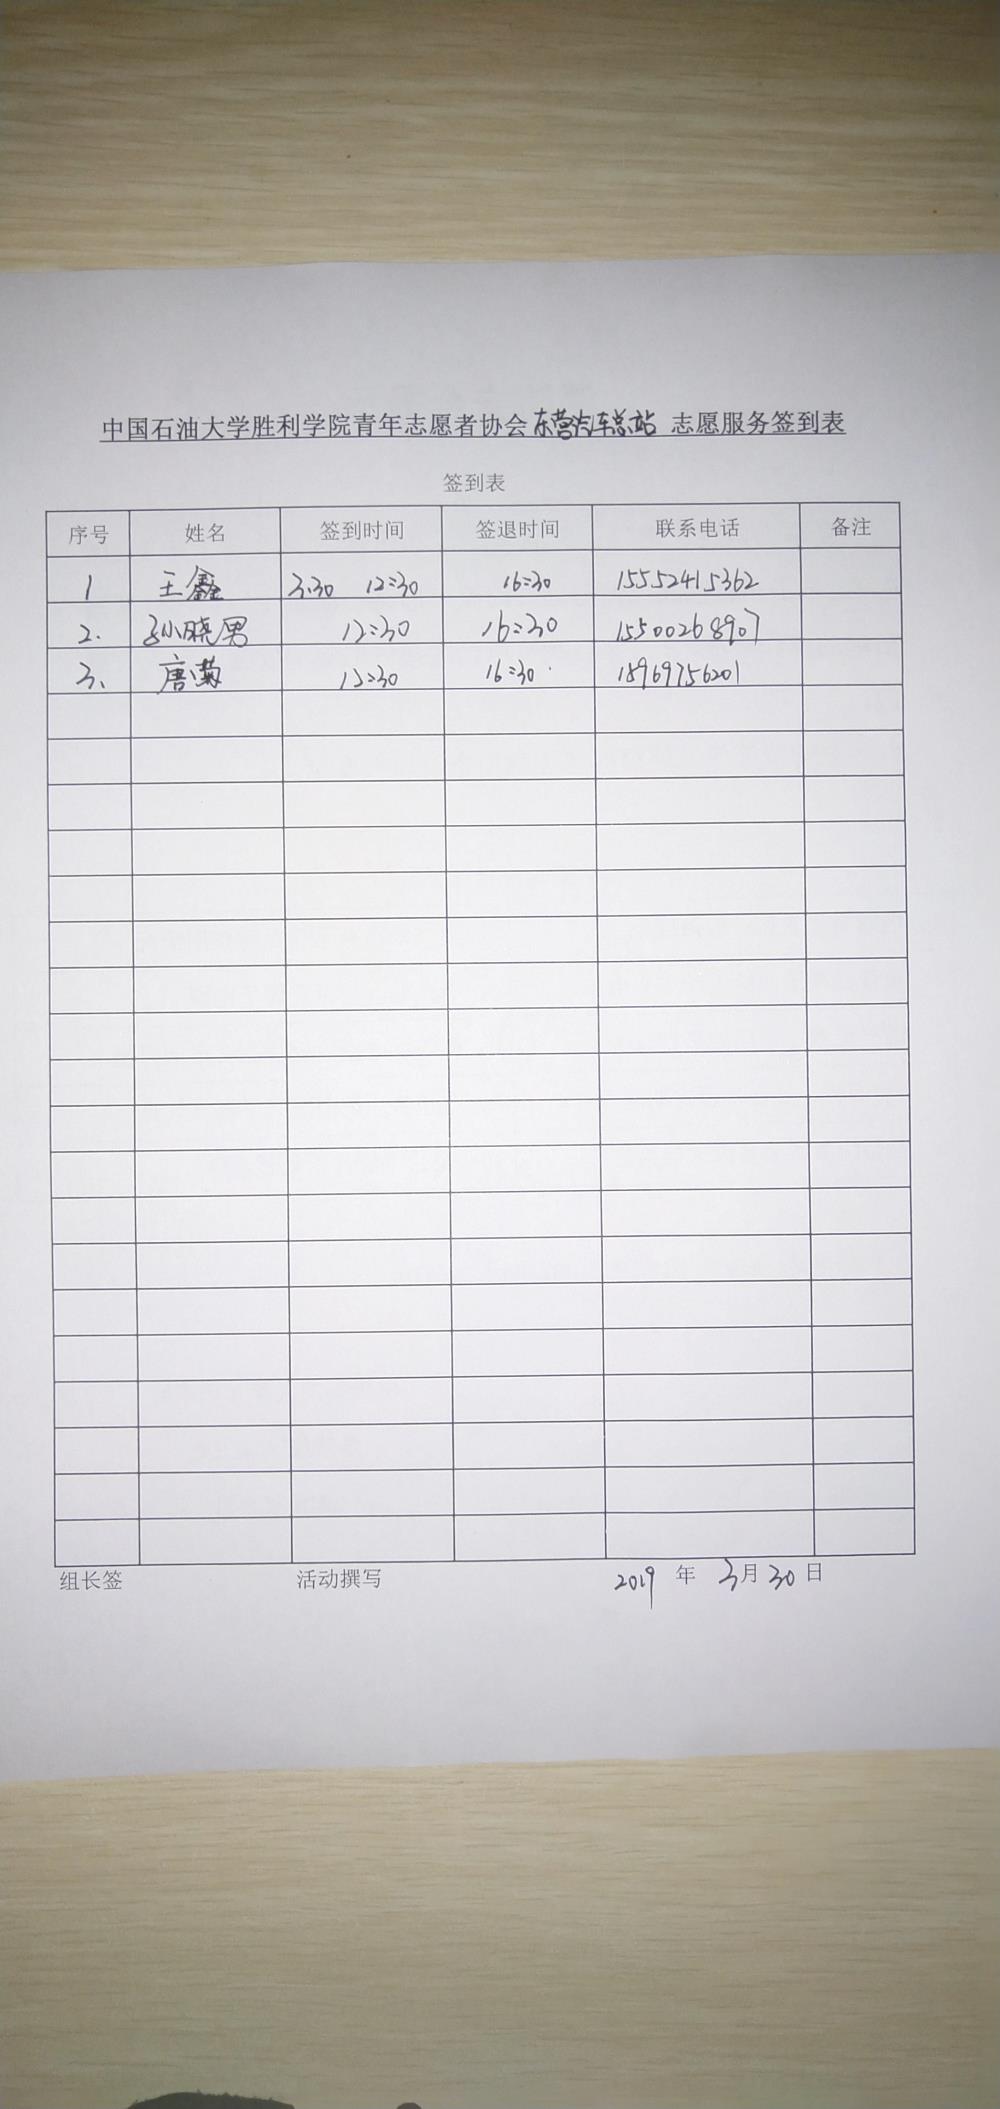 中国石油大学胜利学院青年志愿者协会东营汽车总站 志愿服务签到表
签到表
序号 姓名 签到时间 签退时间 联系电话 备注
1 王鑫 3.30 12:30 16:30 15552415362
2. 孙晓男 12:30 16:30 15500268907
3、 唐菊 12:30 16:30 18969756201
组长签 活动撰写 2019 年 3月30日